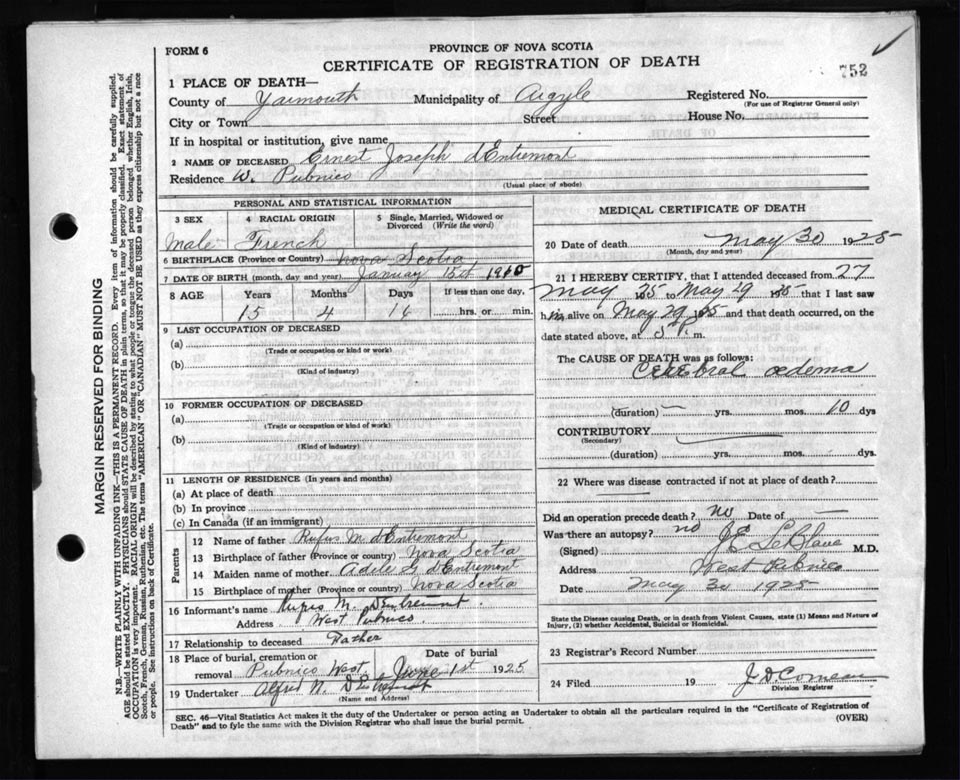 FORM 6
PROVINCE OF NOVA SCOTIA
CERTIFICATE OF REGISTRATION OF DEATH
752
1 PLACE OF DEATH—
County of Yarmouth Municipality of Argyle Registered No.
(For use of Registrar General only)
City or Town Street House No.
If in hospital or institution, give name
2 NAME OF DECEASED Ernest Joseph dEntremont
Residence W. Pubnico
(Usual place of abode)
PERSONAL AND STATISTICAL INFORMATION
3 SEX 4 RACIAL ORIGIN 5 Single, Married, Widowed or Divorced (Write the word)
Male French
6 BIRTHPLACE (Province or Country) Nova Scotia
7 DATE OF BIRTH (month, day and year) January 15th 1910
8 AGE Years Months Days If less than one day,
15 4 hrs. or min.
9 LAST OCCUPATION OF DECEASED
(a)
(Trade or occupation or kind of work)
(b)
(Kind of industry)
10 FORMER OCCUPATION OF DECEASED
(a)
(Trade or occupation or kind of work)
(b)
(Kind of industry)
11 LENGTH OF RESIDENCE (In years and months)
(a) At place of death
(b) In province
(c) In Canada (if an immigrant)
Parents
12 Name of father Rufus M. dEntremont
13 Birthplace of father (Province or country) Nova Scotia
14 Maiden name of mother Adele dEntremont
15 Birthplace of mother (Province or country) Nova Scotia
16 Informant's name Rufus M. dEntremont
Address West Pubnico
17 Relationship to deceased Father
18 Place of burial, cremation or removal Pubnico West Date of burial June 1st 1925
19 Undertaker Alfred N. DEntremont
(Name and Address)
MEDICAL CERTIFICATE OF DEATH
20 Date of death May 30 1925
(Month, day and year)
21 I HEREBY CERTIFY, that I attended deceased from 27
May 1925 to May 29 1925 that I last saw
him alive on May 29 1925 and that death occurred, on the
date stated above, at m.
The CAUSE OF DEATH was as follows:
Cerebral oedema
(duration) — yrs. mos. 10 dys
CONTRIBUTORY
(Secondary)
(duration) yrs. mos. dys.
22 Where was disease contracted if not at place of death?
Did an operation precede death? No Date of —
Was there an autopsy? no
(Signed) J E LeBlanc M.D.
Address West Pubnico
Date May 30 1925
State the Disease causing Death, or in death from Violent Causes, state (1) Means and Nature of
Injury, (2) whether Accidental, Suicidal or Homicidal.
23 Registrar's Record Number
24 Filed 19 J D Comeau
Division Registrar
SEC. 46—Vital Statistics Act makes it the duty of the Undertaker or person acting as Undertaker to obtain all the particulars required in the "Certificate of Registration of
Death" and to fyle the same with the Division Registrar who shall issue the burial permit.
(OVER)
MARGIN RESERVED FOR BINDING
N.B.—WRITE PLAINLY WITH UNFADING INK—THIS IS A PERMANENT RECORD. Every item of information should be carefully supplied.
AGE should be stated EXACTLY. PHYSICIANS should STATE CAUSE OF DEATH in plain terms, so that it may be properly classified. Exact statement of
OCCUPATION is very important. RACIAL ORIGIN will be described by stating to what people or tongue the deceased person belonged whether English, Irish,
Scotch, French, German, Russian, Ruthenian, etc. The terms "AMERICAN" OR "CANADIAN" MUST NOT BE USED as they express citizenship but not a race
or people. See instructions on back of Certificate.